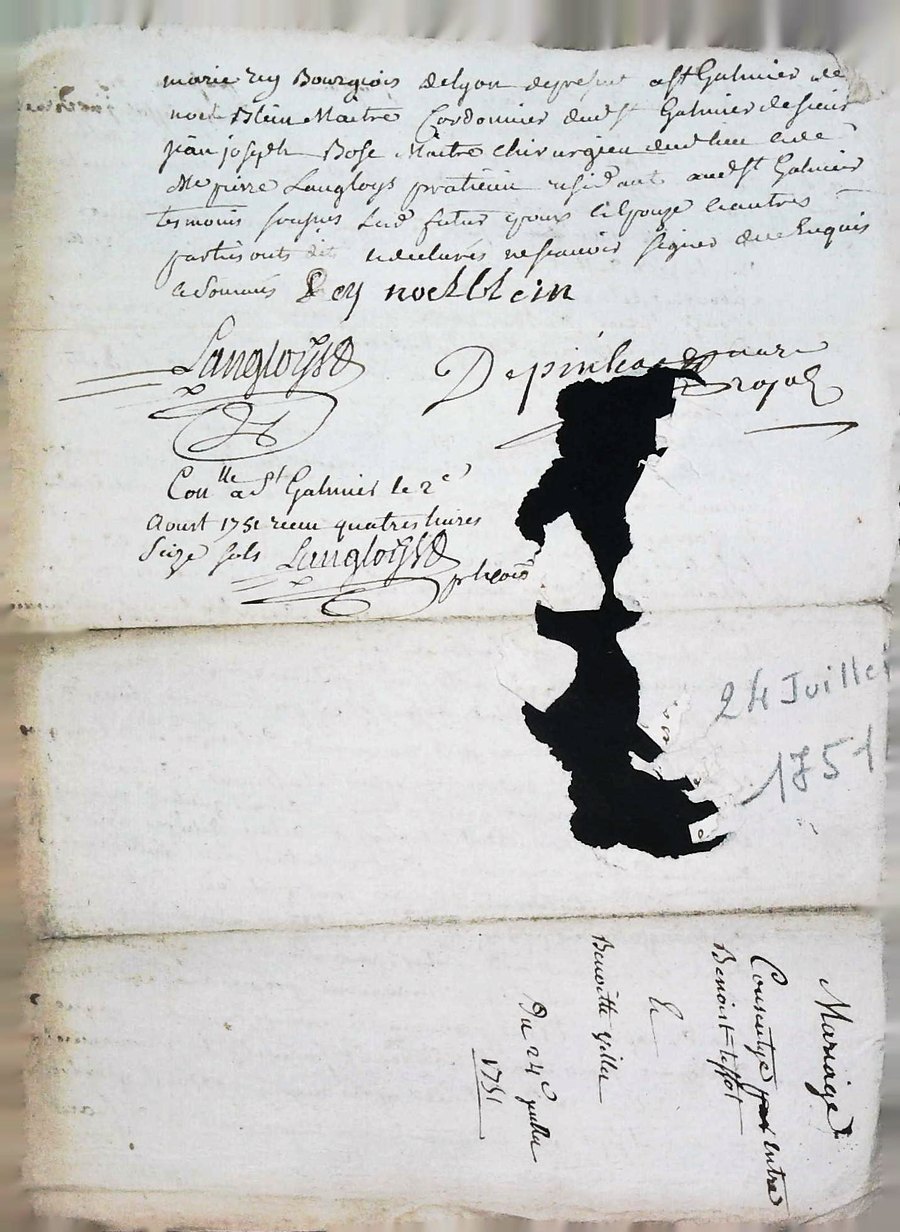 marie rey Bourgiois delyon depresent a St Galmier de
noel Blein Maitre Cordonnier dudst Galmier de sieur
jean joseph Bose Maitre chirurgien dudlieu et de
Me pierre Langloys praticien residant audst Galmier
temoins sousnes Lesd futur epoux et Epouze et autres
parties ont declarés ne scavoir signer de ce Enquis
et sommés Rey noel blein
Langloys
Depinhac
Con.lle a St Galmier le 2e
Aoust 1751 receu quatres livres
Seize sols Langloys
24 Juillet
1751
Mariage
Consentye par Entre
Benoist teffot
Et
Benoitte
Du 24e juillet
1751